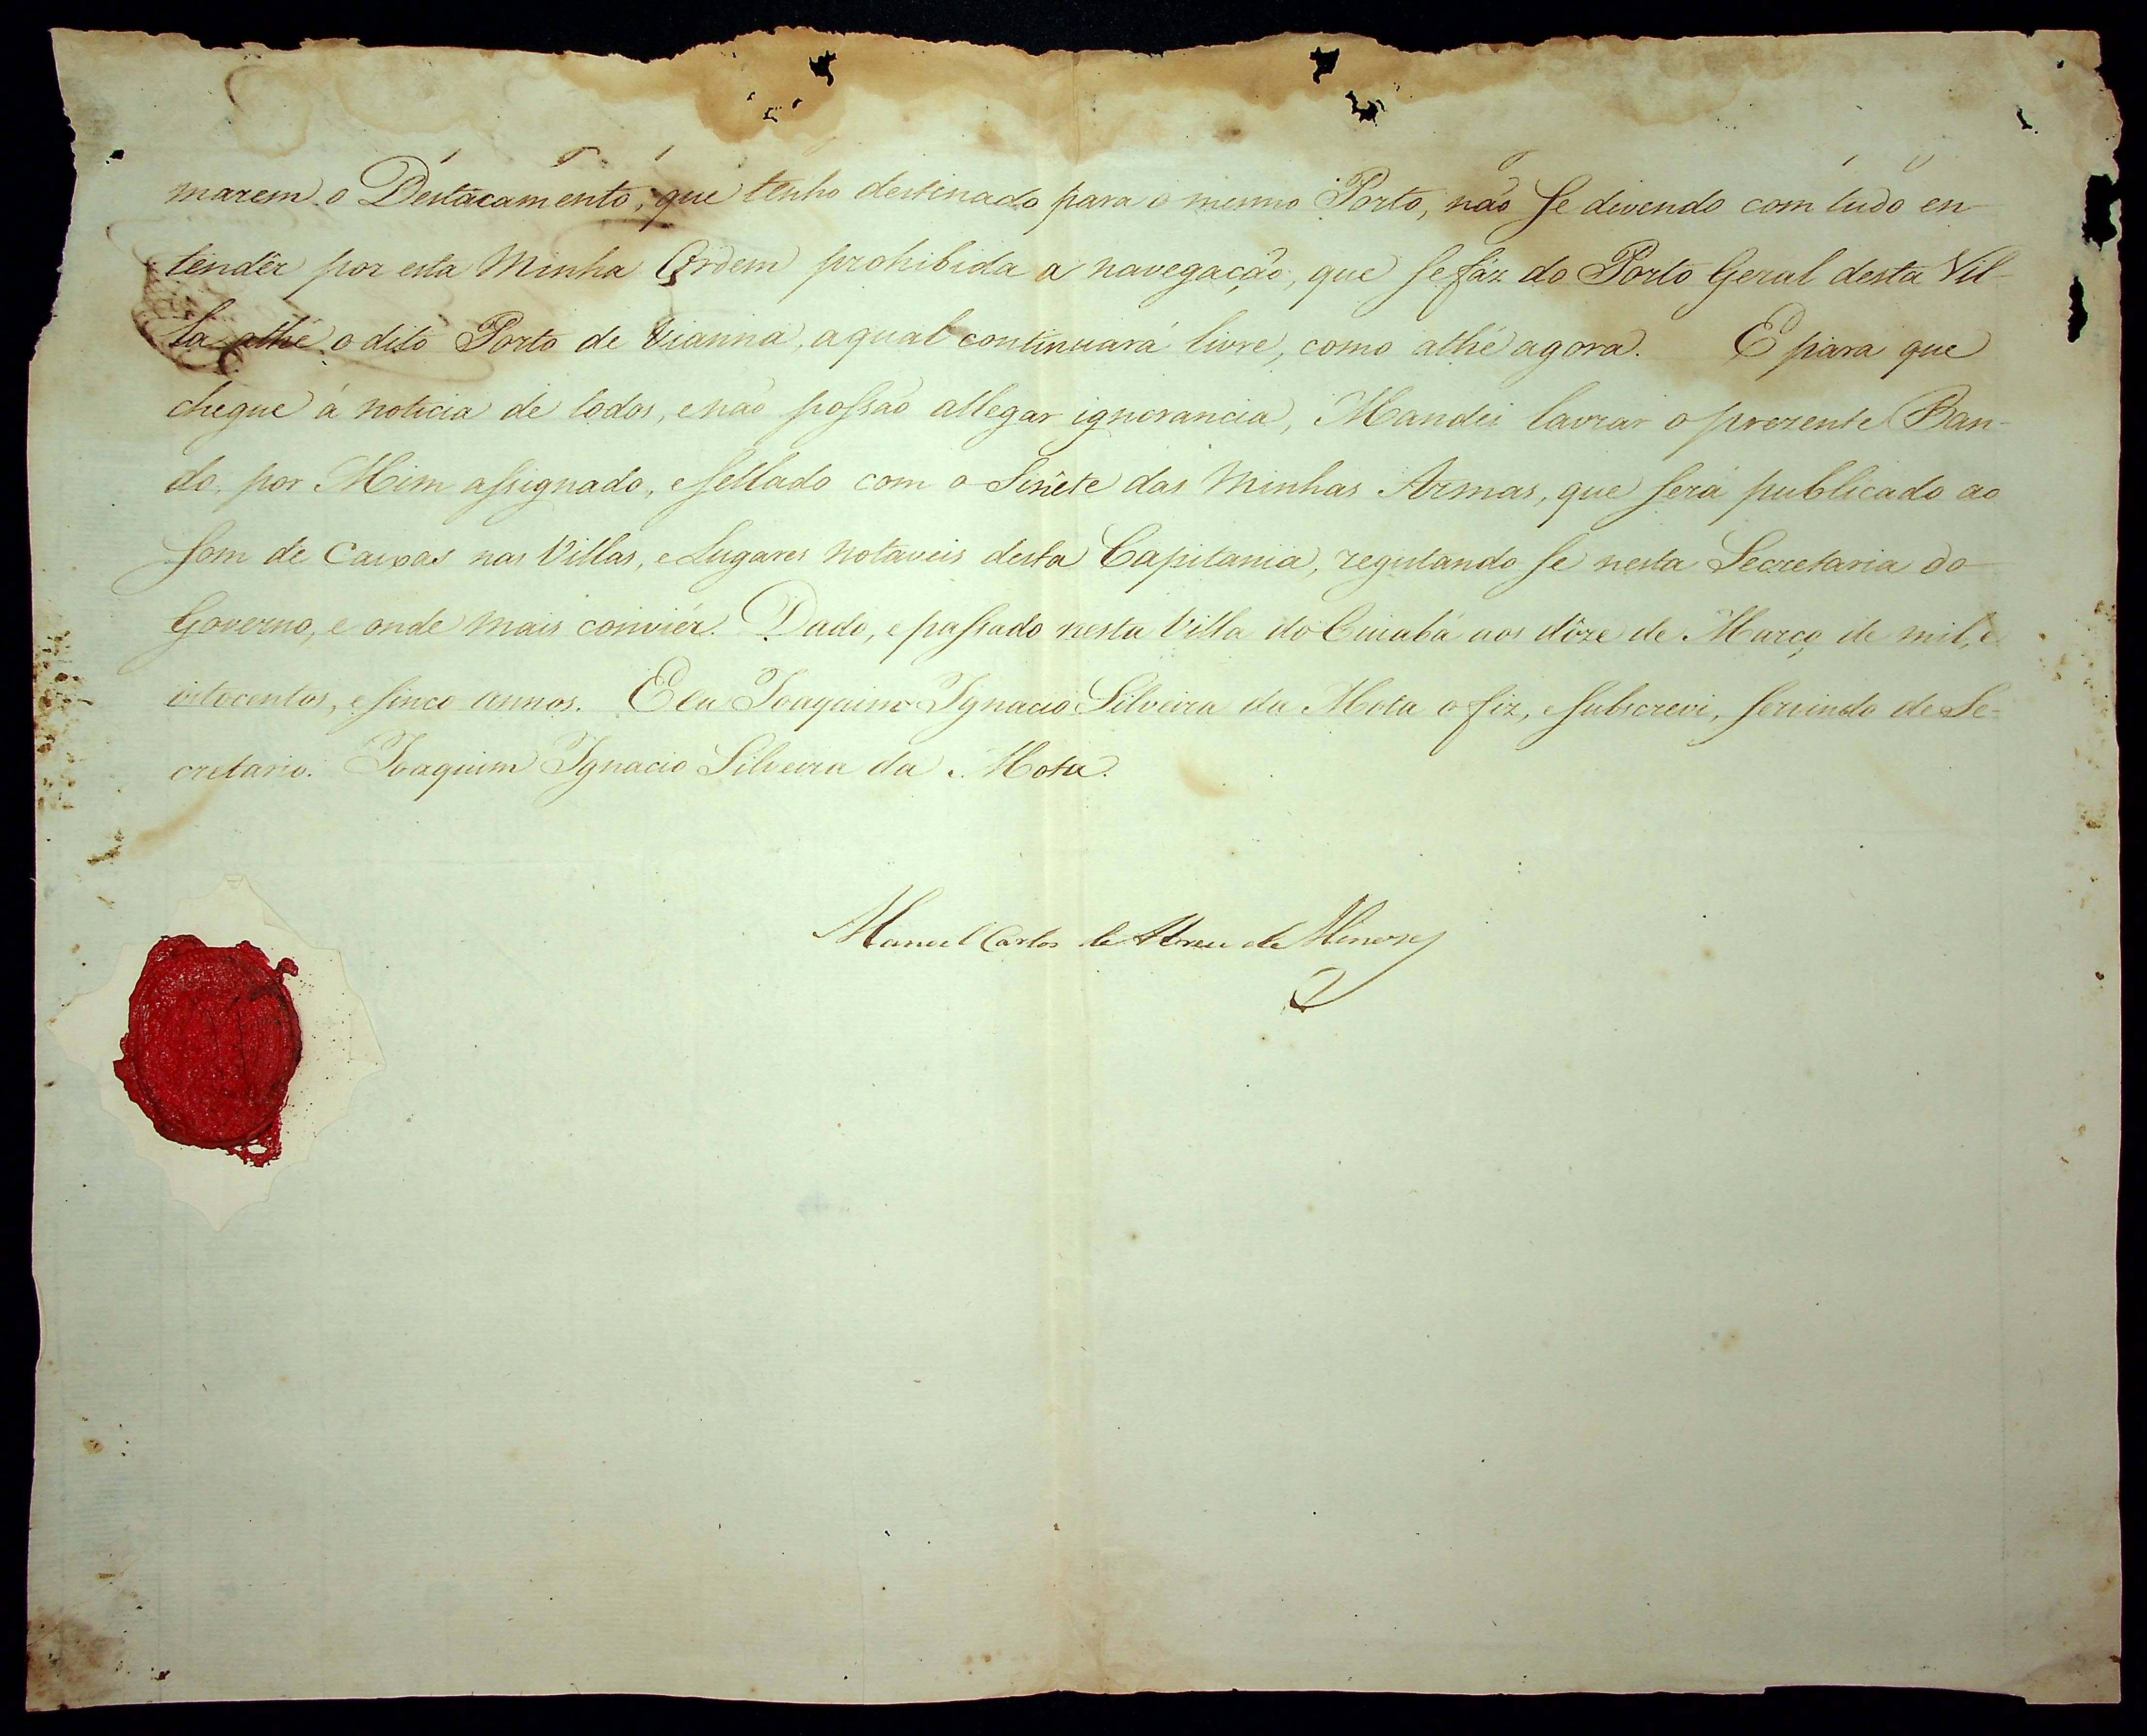 marem o Destacamento, que tenho destinado para o mesmo Porto, não se divendo com tudo en-
tendêr por esta Minha Ordem prohibida a navegação, que se fáz do Porto Geral desta Vil-
la athé o dito Porto de Vianna, a qual continuará livre, como athé agora. E para que
chegue á noticia de todos, e não possão allegar ignorancia, Mandei lavrar o prezente Ban-
do por Mim assignado, e sellado com o Sinête das Minhas Armas, que será publicado ao
som de Caixas nas Villas, e Lugares notaveis desta Capitania, registando se nesta Secretaria do
Governo, e onde mais conviér. Dado, e passado nesta Villa do Cuiabá aos dôze de Março de mil, e
oitocentos, e sinco annos. E eu Joaquim Ignacio Silveira da Mota o fiz, e subscrevi, servindo de Se-
cretario. Joaquim Ignacio Silveira da Mota.
Manoel Carlos de Abreu de Menezes